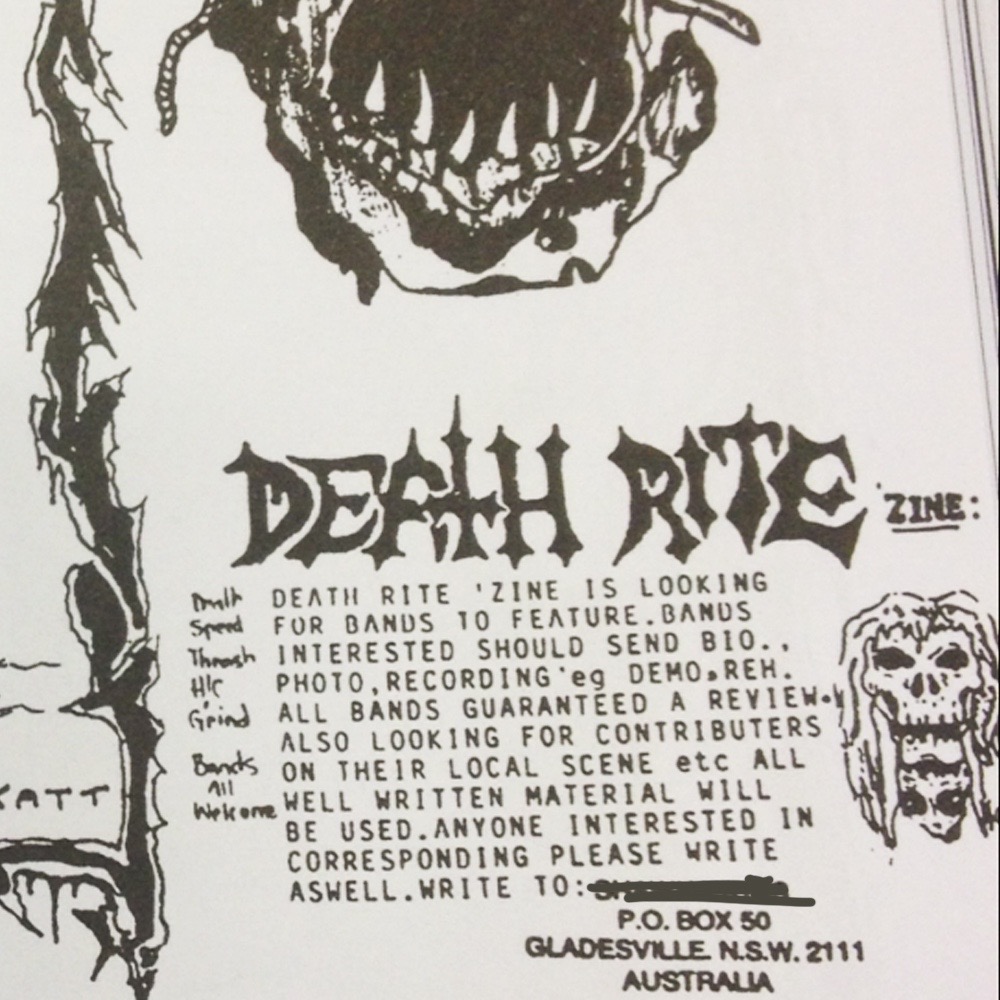 DEATH RITE 'ZINE:
DEATH RITE 'ZINE IS LOOKING
FOR BANDS TO FEATURE.BANDS
INTERESTED SHOULD SEND BIO.,
PHOTO,RECORDING'eg DEMO.REH.
ALL BANDS GUARANTEED A REVIEW.
ALSO LOOKING FOR CONTRIBUTERS
ON THEIR LOCAL SCENE etc ALL
WELL WRITTEN MATERIAL WILL
BE USED.ANYONE INTERESTED IN
CORRESPONDING PLEASE WRITE
ASWELL.WRITE TO:
P.O. BOX 50
GLADESVILLE. N.S.W. 2111
AUSTRALIA
Death
Speed
Thrash
H/C
Grind
Bands
All
Welcome